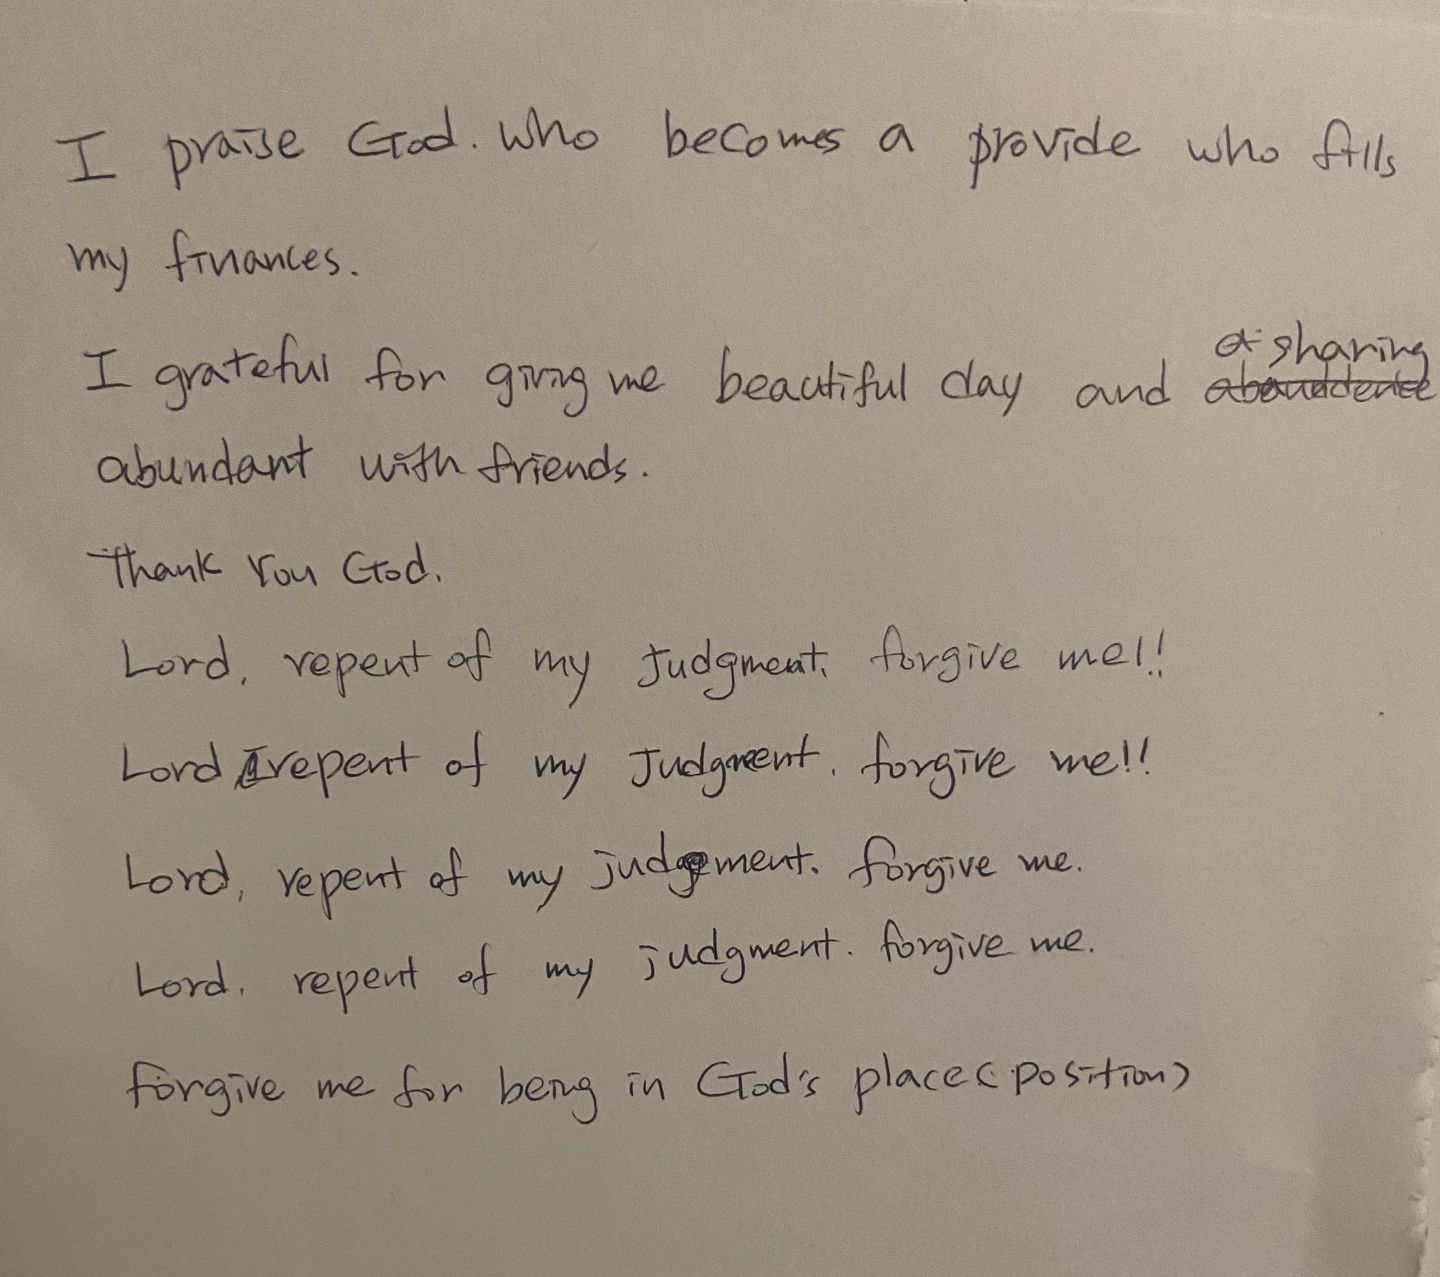 I praise God. who becomes a provide who fills
my finances.
I grateful for giving me beautiful day and a sharing
abundant with friends.
Thank You God.
Lord, repent of my Judgment. forgive me!!
Lord I repent of my Judgment. forgive me!!
Lord, repent of my judgement. forgive me.
Lord. repent of my judgment. forgive me.
forgive me for being in God's place (position)